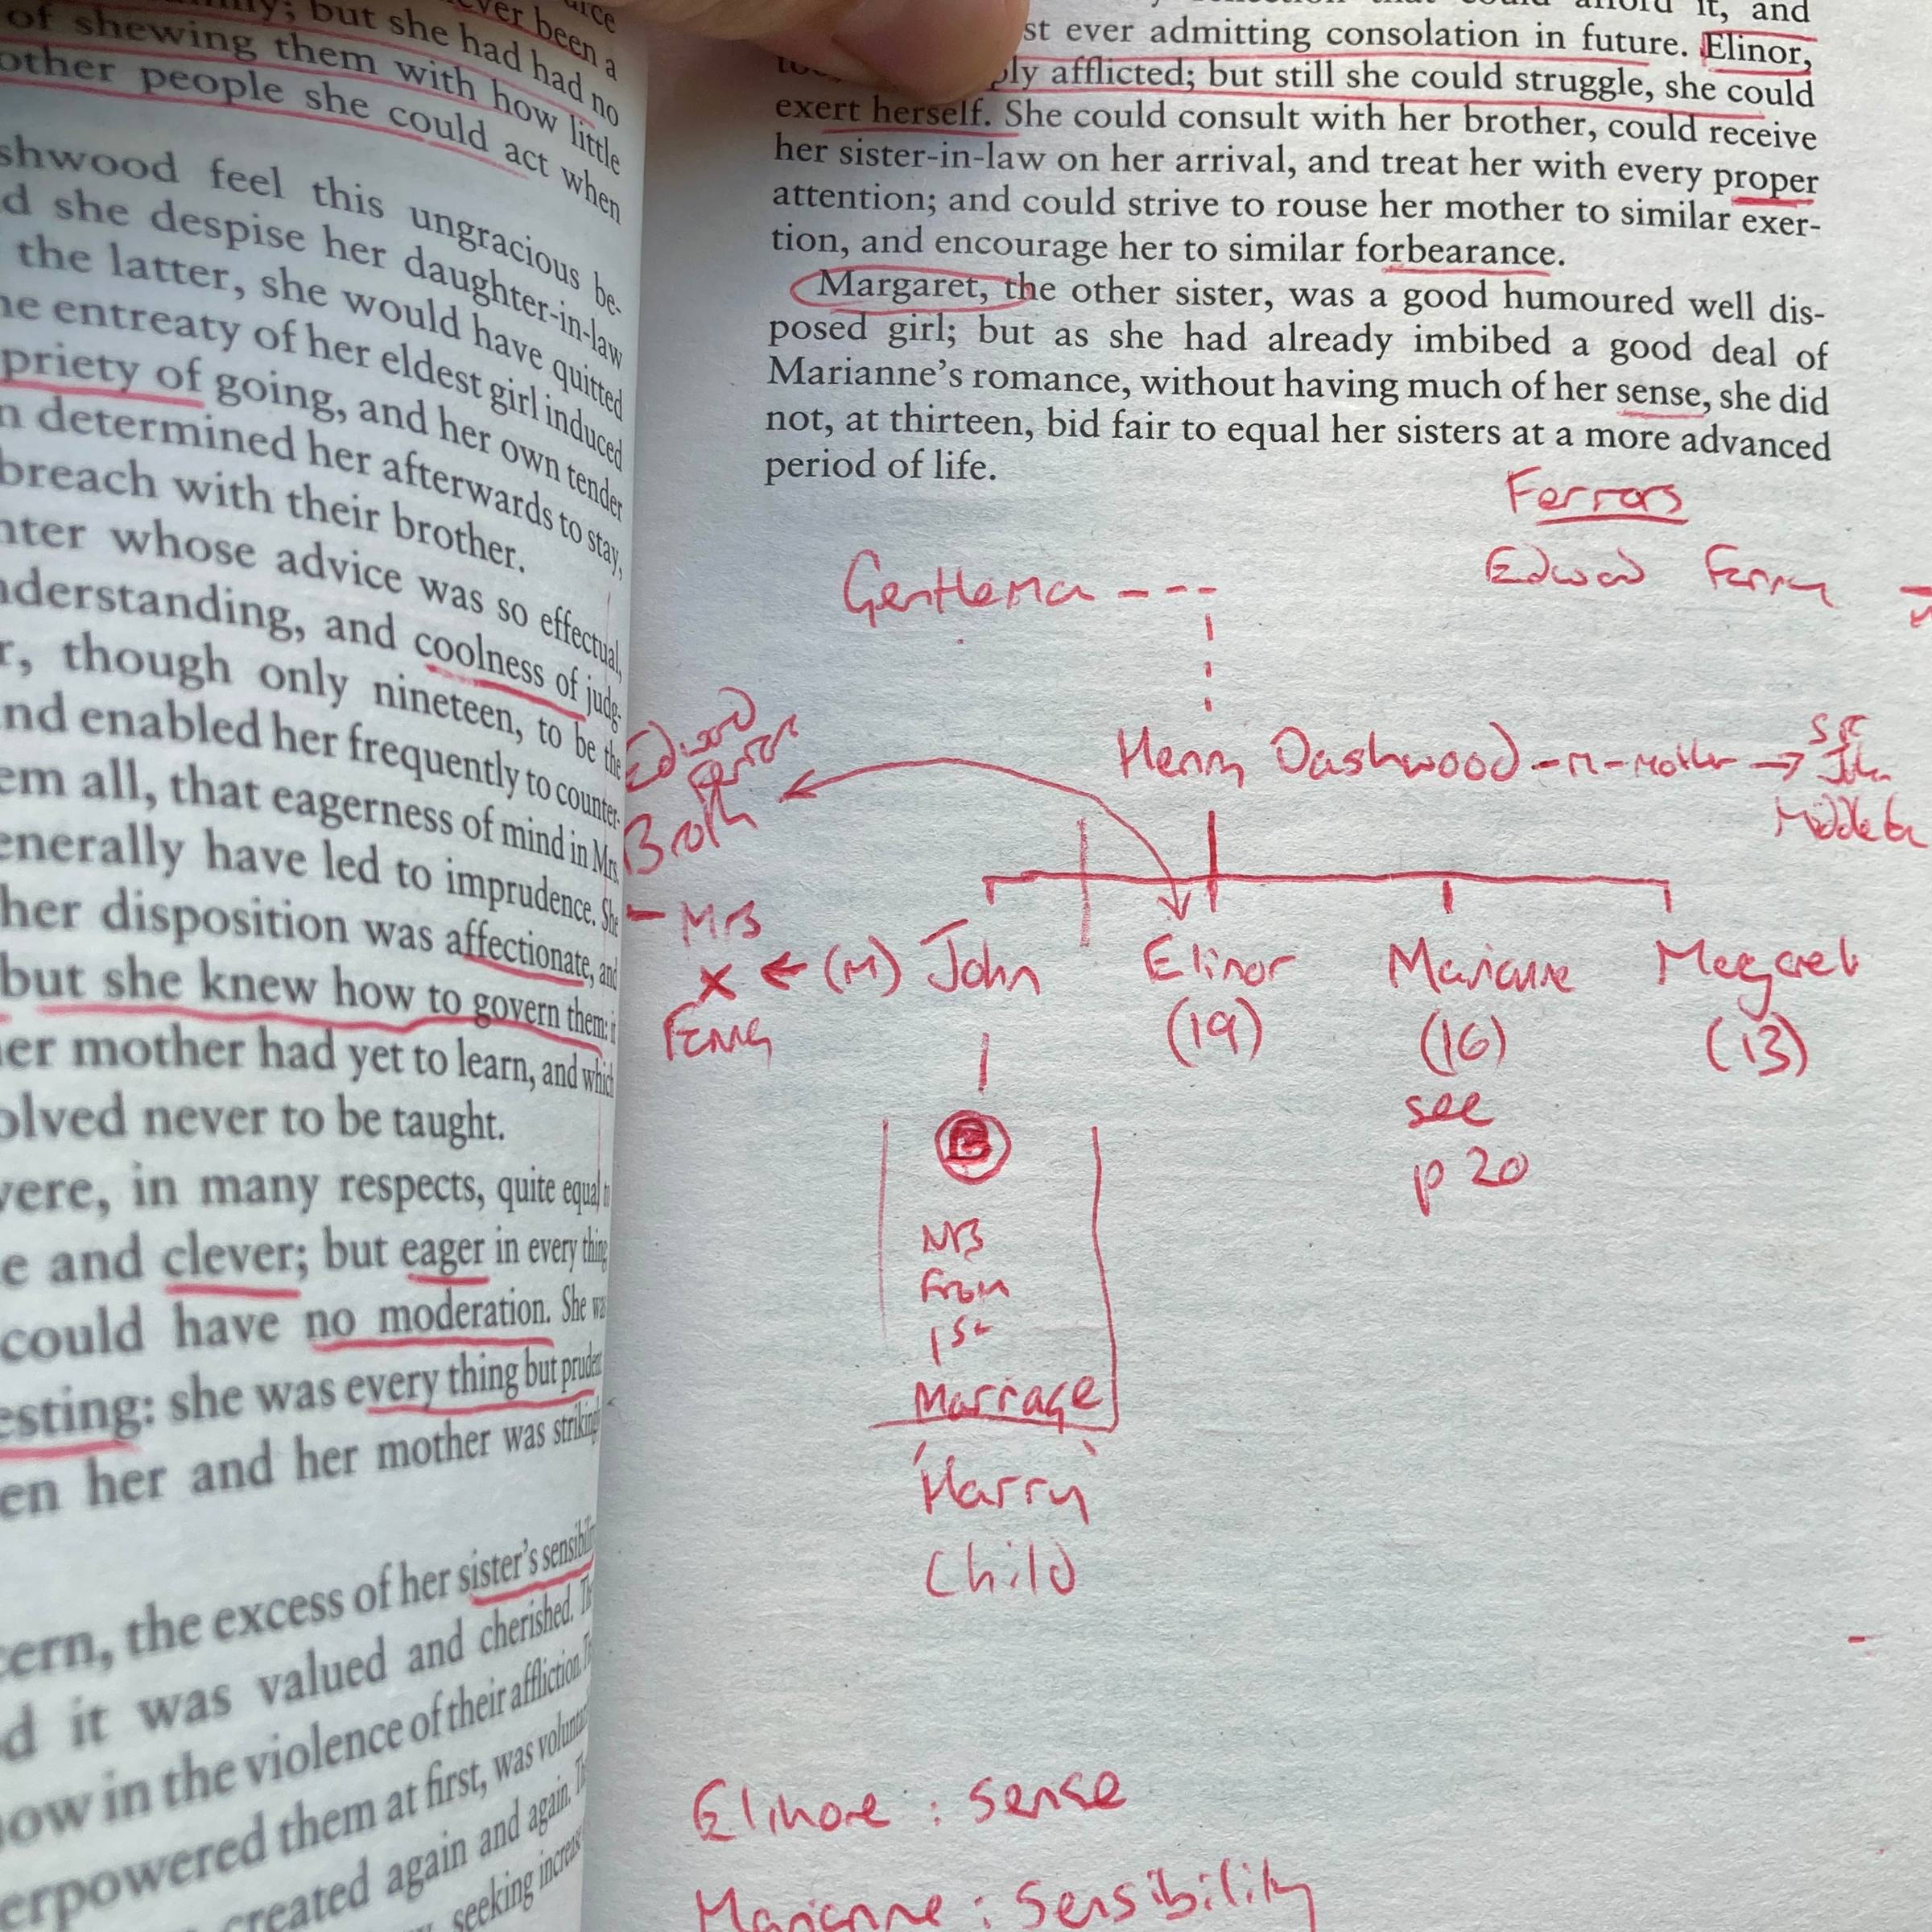 arce
ever been a
; but she had had no
of shewing them with how little
other people she could act when
shwood feel this ungracious be-
d she despise her daughter-in-law
the latter, she would have quitted
ne entreaty of her eldest girl induced
priety of going, and her own tender
n determined her afterwards to stay,
breach with their brother.
nter whose advice was so effectual,
nderstanding, and coolness of judg-
r, though only nineteen, to be the
nd enabled her frequently to counter-
em all, that eagerness of mind in Mrs.
enerally have led to imprudence. She
her disposition was affectionate, and
but she knew how to govern them: it
er mother had yet to learn, and which
olved never to be taught.
were, in many respects, quite equal to
e and clever; but eager in every thing
could have no moderation. She was
esting: she was every thing but prudent
en her and her mother was strikingly
cern, the excess of her sister's sensibility
d it was valued and cherished. They
now in the violence of their affliction. The
erpowered them at first, was voluntar
created again and again. Th
seeking increase
it, and
st ever admitting consolation in future. Elinor,
ply afflicted; but still she could struggle, she could
exert herself. She could consult with her brother, could receive
her sister-in-law on her arrival, and treat her with every proper
attention; and could strive to rouse her mother to similar exer-
tion, and encourage her to similar forbearance.
Margaret, the other sister, was a good humoured well dis-
posed girl; but as she had already imbibed a good deal of
Marianne's romance, without having much of her sense, she did
not, at thirteen, bid fair to equal her sisters at a more advanced
period of life.
Ferrars
Gentleman Edward Ferrars
Edward
Ferrars
Broth
Henry Dashwood - M - Mother → Sir
John
Middleton
Mrs
x ← (M) John Elinor Marianne Margaret
Ferrars (19) (16) (13)
see
p 20
NB
From
1st
Marriage
'Harry'
Child
Elinore : Sense
Marianne : Sensibility